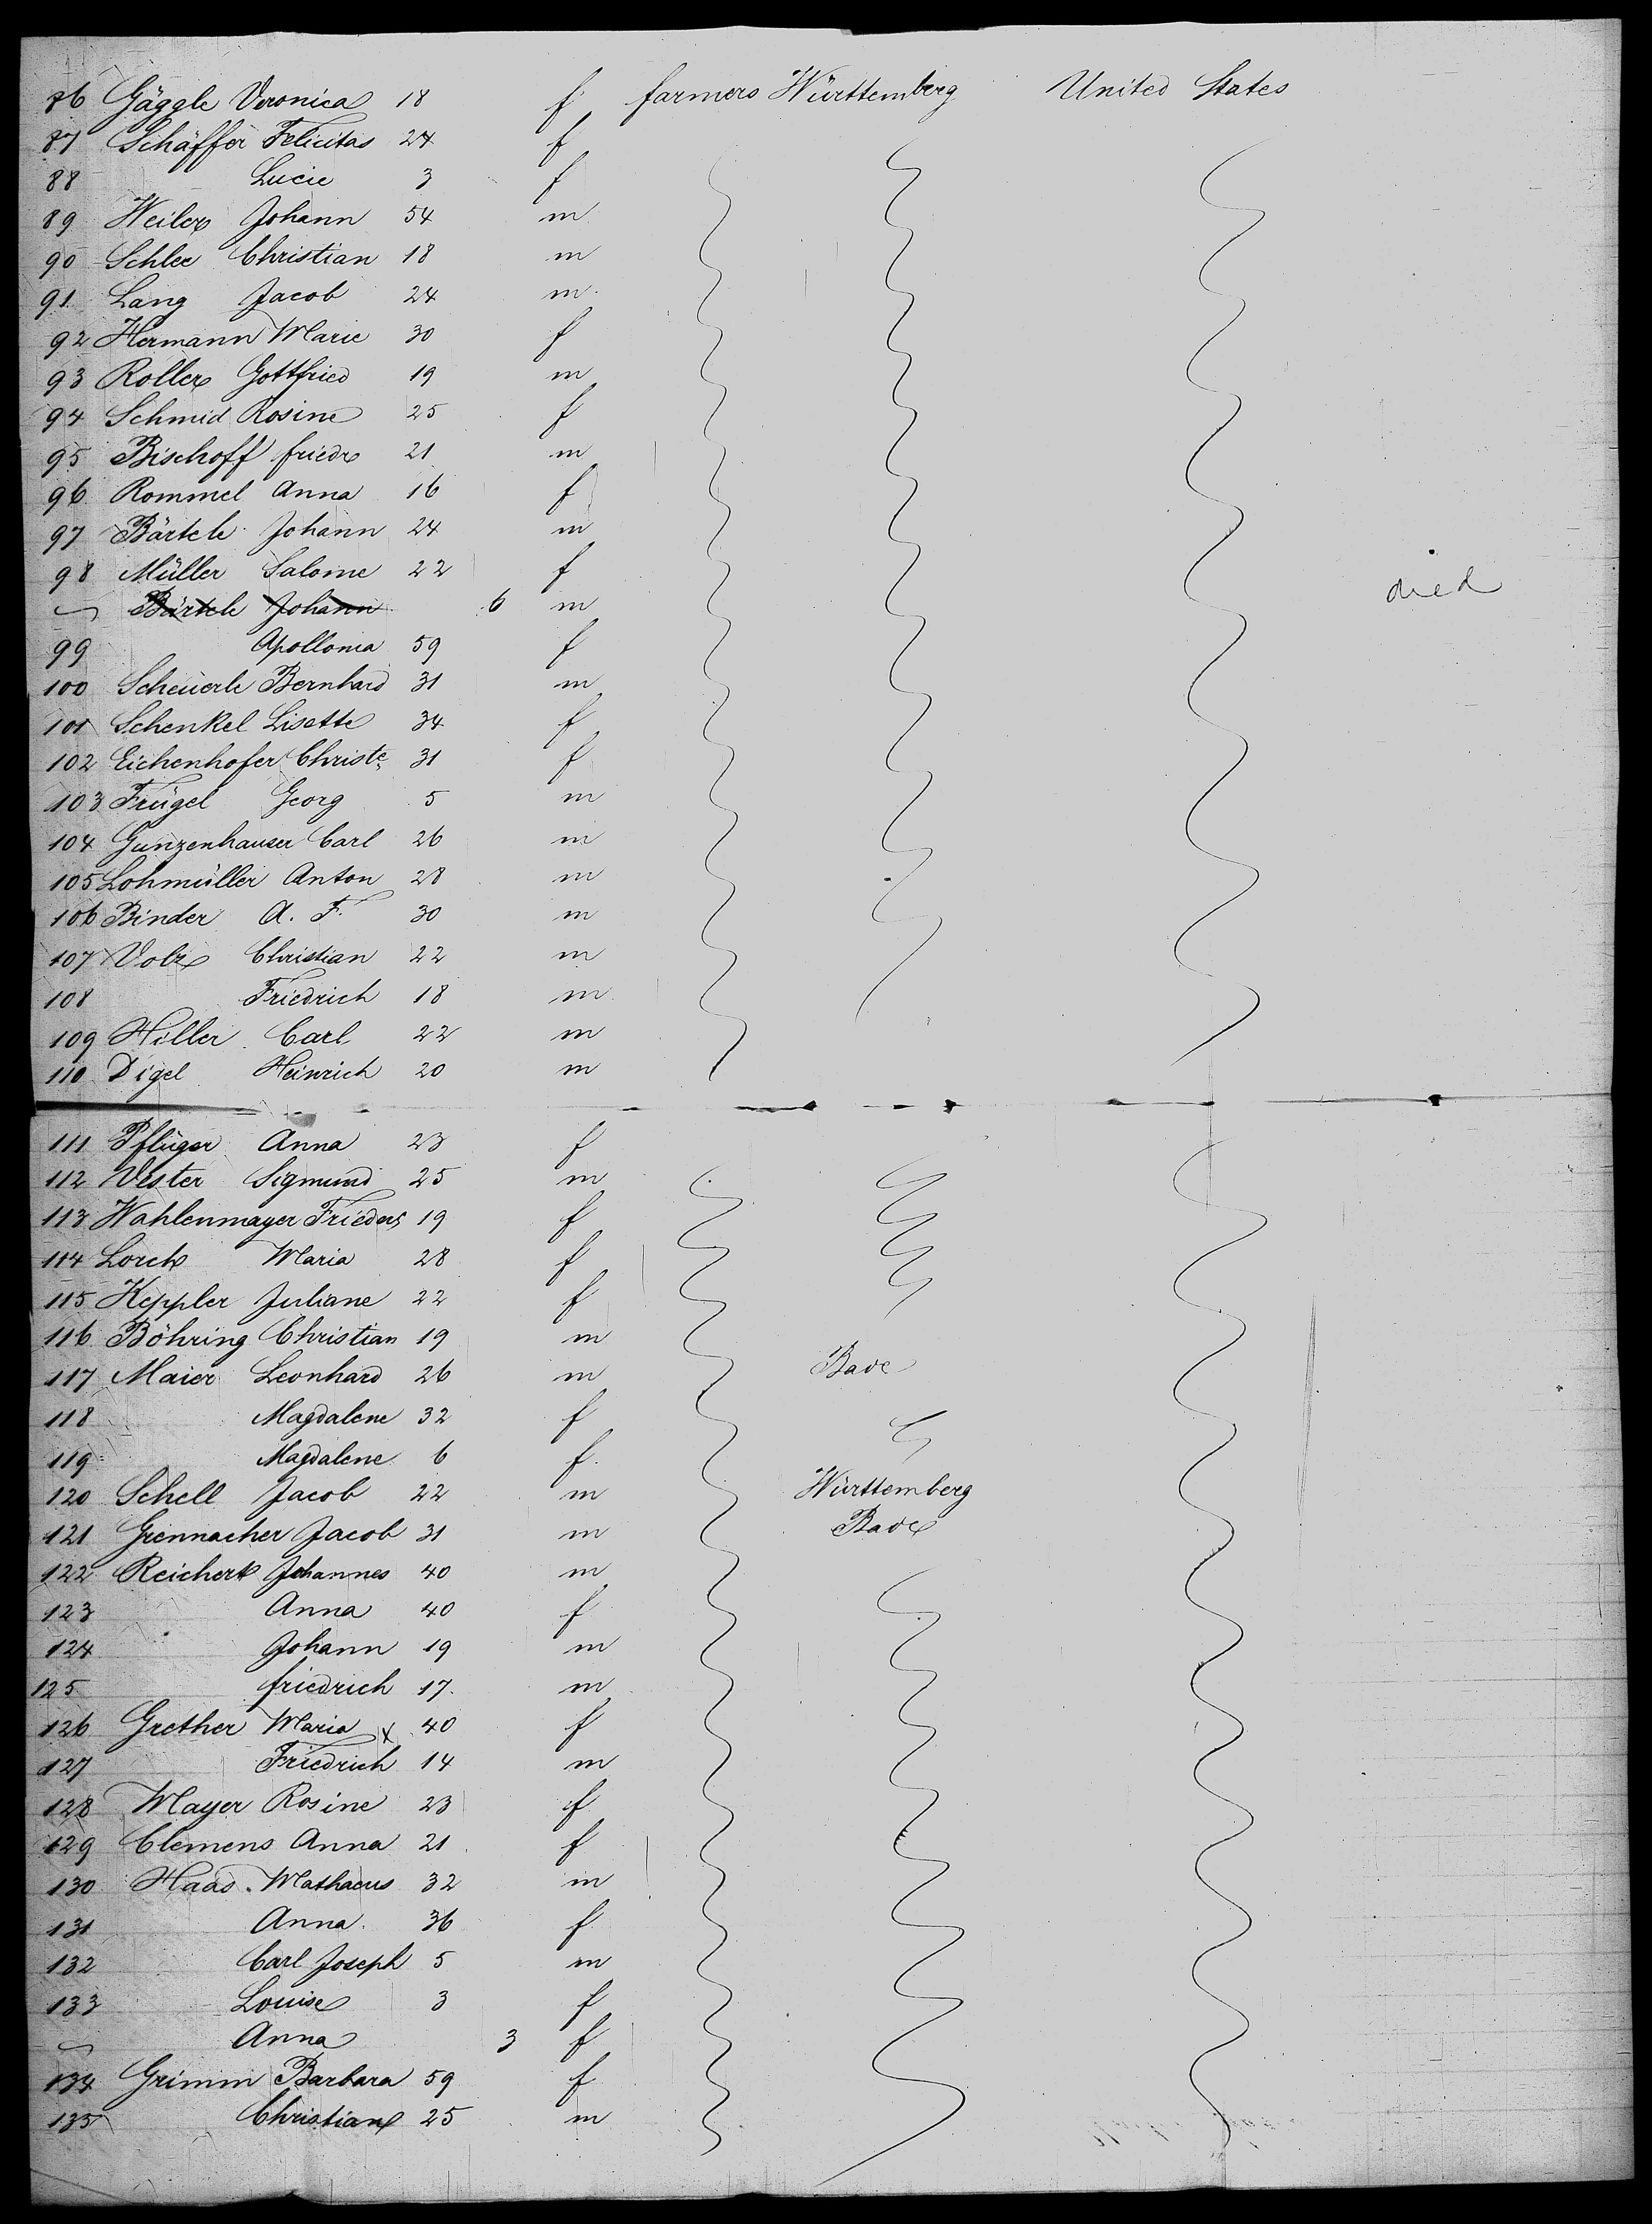 86 Gäggle Veronica 18 f farmers Württemberg United States
87 Schäffer Felicitas 24 f
88 Lucie 3 f
89 Weiler Johann 54 m
90 Schlee Christian 18 m
91 Lang Jacob 24 m
92 Hermann Marie 30 f
93 Roller Gottfried 19 m
94 Schmid Rosine 25 f
95 Bischoff friedr 21 m
96 Rommel Anna 16 f
97 Bärtele Johann 24 m
98 Müller Salome 22 f
Bärtele Johann 6 m died
99 Apollonia 59 f
100 Scheuerle Bernhard 31 m
101 Schenkel Lisette 34 f
102 Eichenhofer Christe 31 f
103 Frügel Georg 5 m
104 Gunzenhauser Carl 26 m
105 Lohmüller Anton 28 m
106 Binder A. F. 30 m
107 Volz Christian 22 m
108 Friedrich 18 m
109 Hiller Carl 22 m
110 Digel Heinrich 20 m
111 Pflüger Anna 23 f
112 Vester Sigmund 25 m
113 Wahlenmayer 19 f
114 Lorch Maria 28 f
115 Keppler Juliane 22 f
116 Böhring Christian 19 m
117 Maier Leonhard 26 m Bade
118 Magdalene 32 f
119 Magdalene 6 f
120 Schell Jacob 22 m Württemberg
121 Grennacher Jacob 31 m Bade
122 Reichert Johannes 40 m
123 Anna 40 f
124 Johann 19 m
125 friedrich 17 m
126 Grether Maria x 40 f
127 Friedrich 14 m
128 Mayer Rosine 23 f
129 Clemens Anna 21 f
130 Haas Mathaeus 32 m
131 Anna 36 f
132 Carl Joseph 5 m
133 Louise 3 f
Anna 3 f
134 Grimm Barbara 59 f
135 Christian 25 m